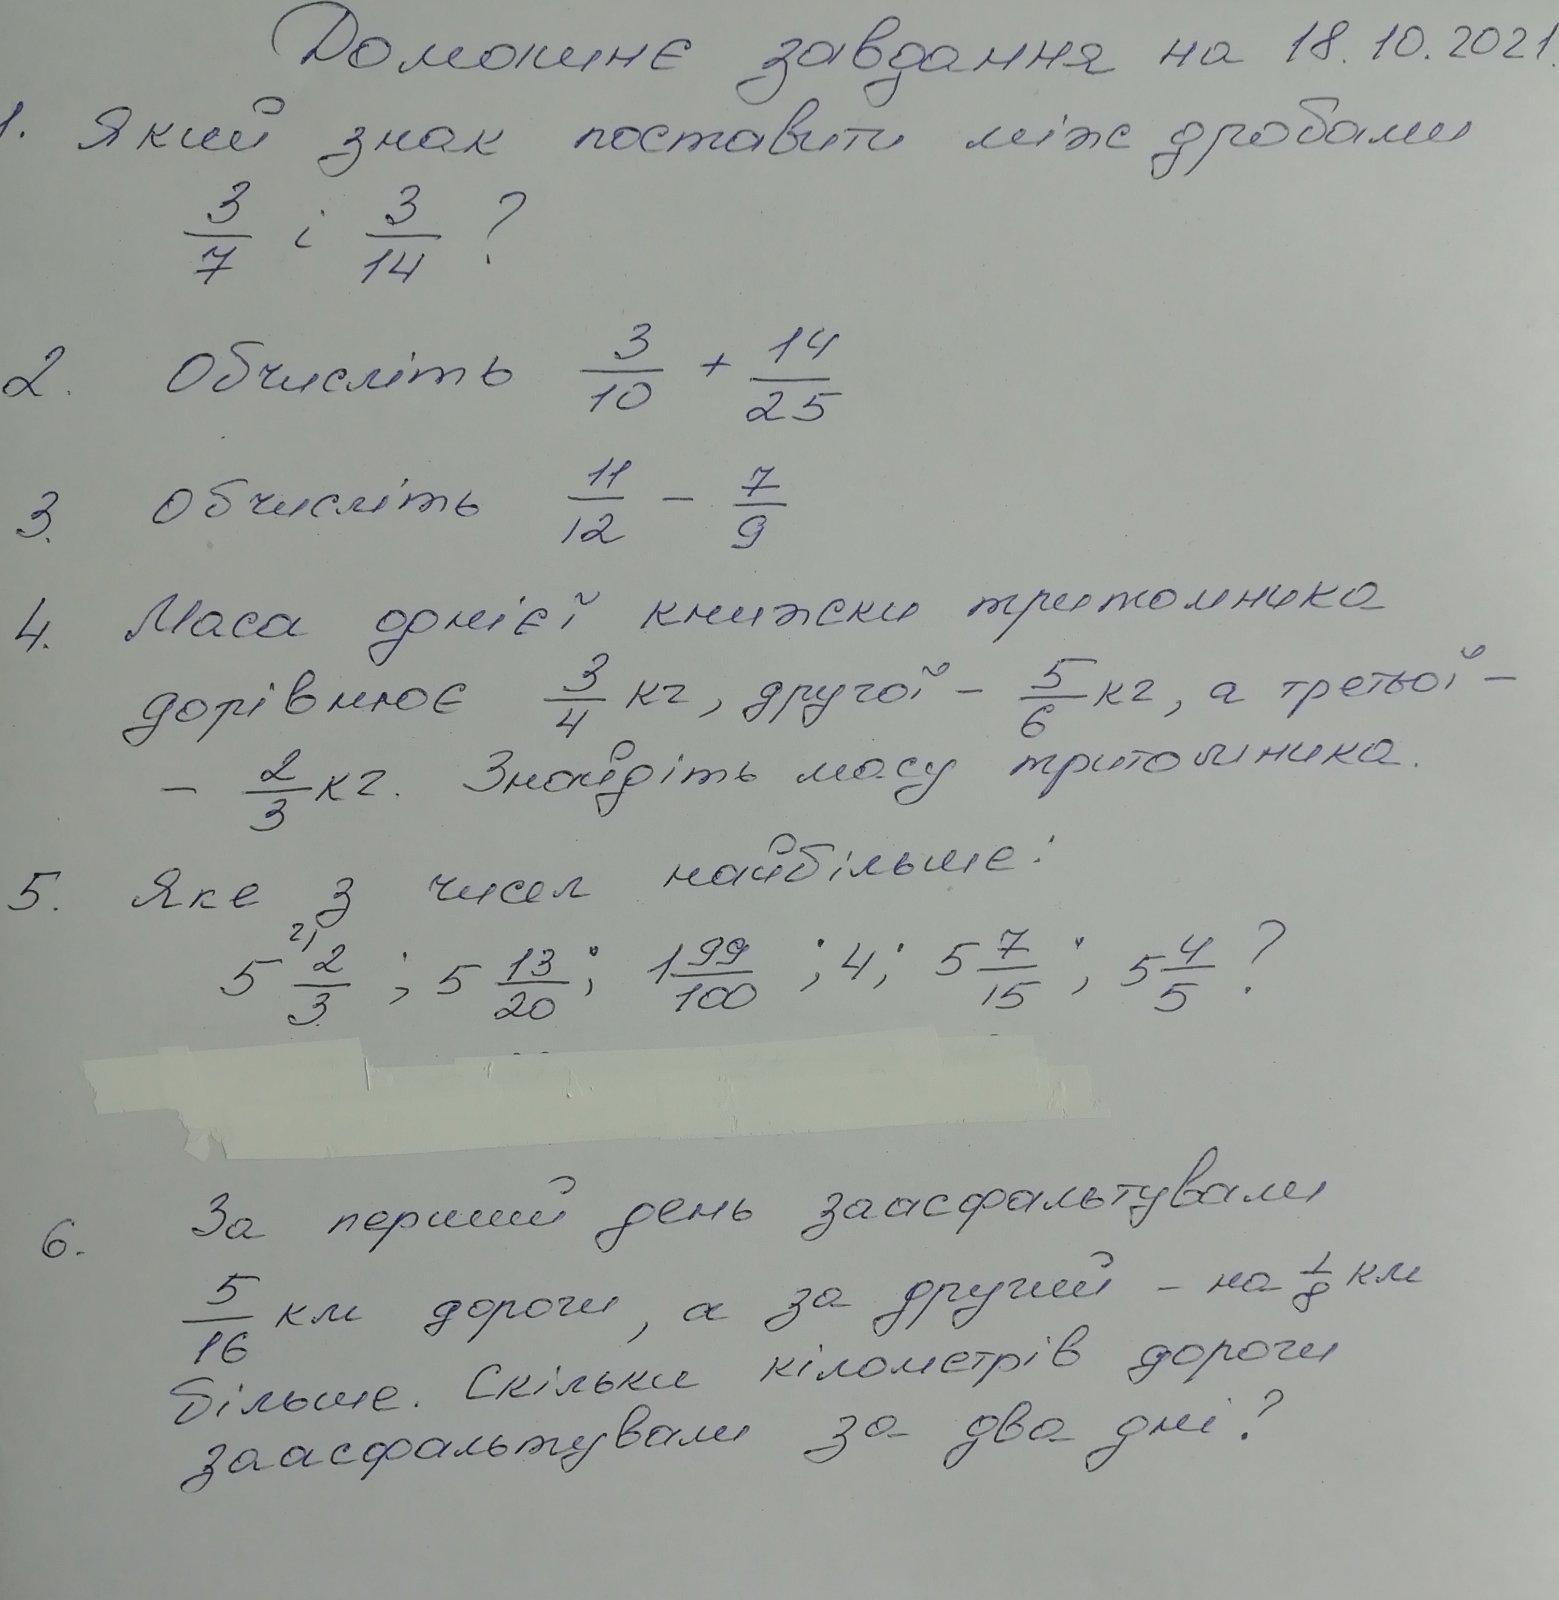 Домашнє завдання на 18.10.2021.
1. Який знак поставити між дробами
3/7 і 3/14 ?
2. Обчисліть 3/10 + 14/25
3. Обчисліть 11/12 - 7/9
4. Маса однієї книжки тритомника
дорівнює 3/4 кг, другої - 5/6 кг, а третьої -
- 2/3 кг. Знайдіть масу тритомника.
5. Яке з чисел найбільше:
5 2/3 ; 5 13/20 ; 1 99/100 ; 4; 5 7/15 ; 5 4/5 ?
6. За перший день заасфальтували
5/16 км дороги, а за другий - на 1/8 км
більше. Скільки кілометрів дороги
заасфальтували за два дні?